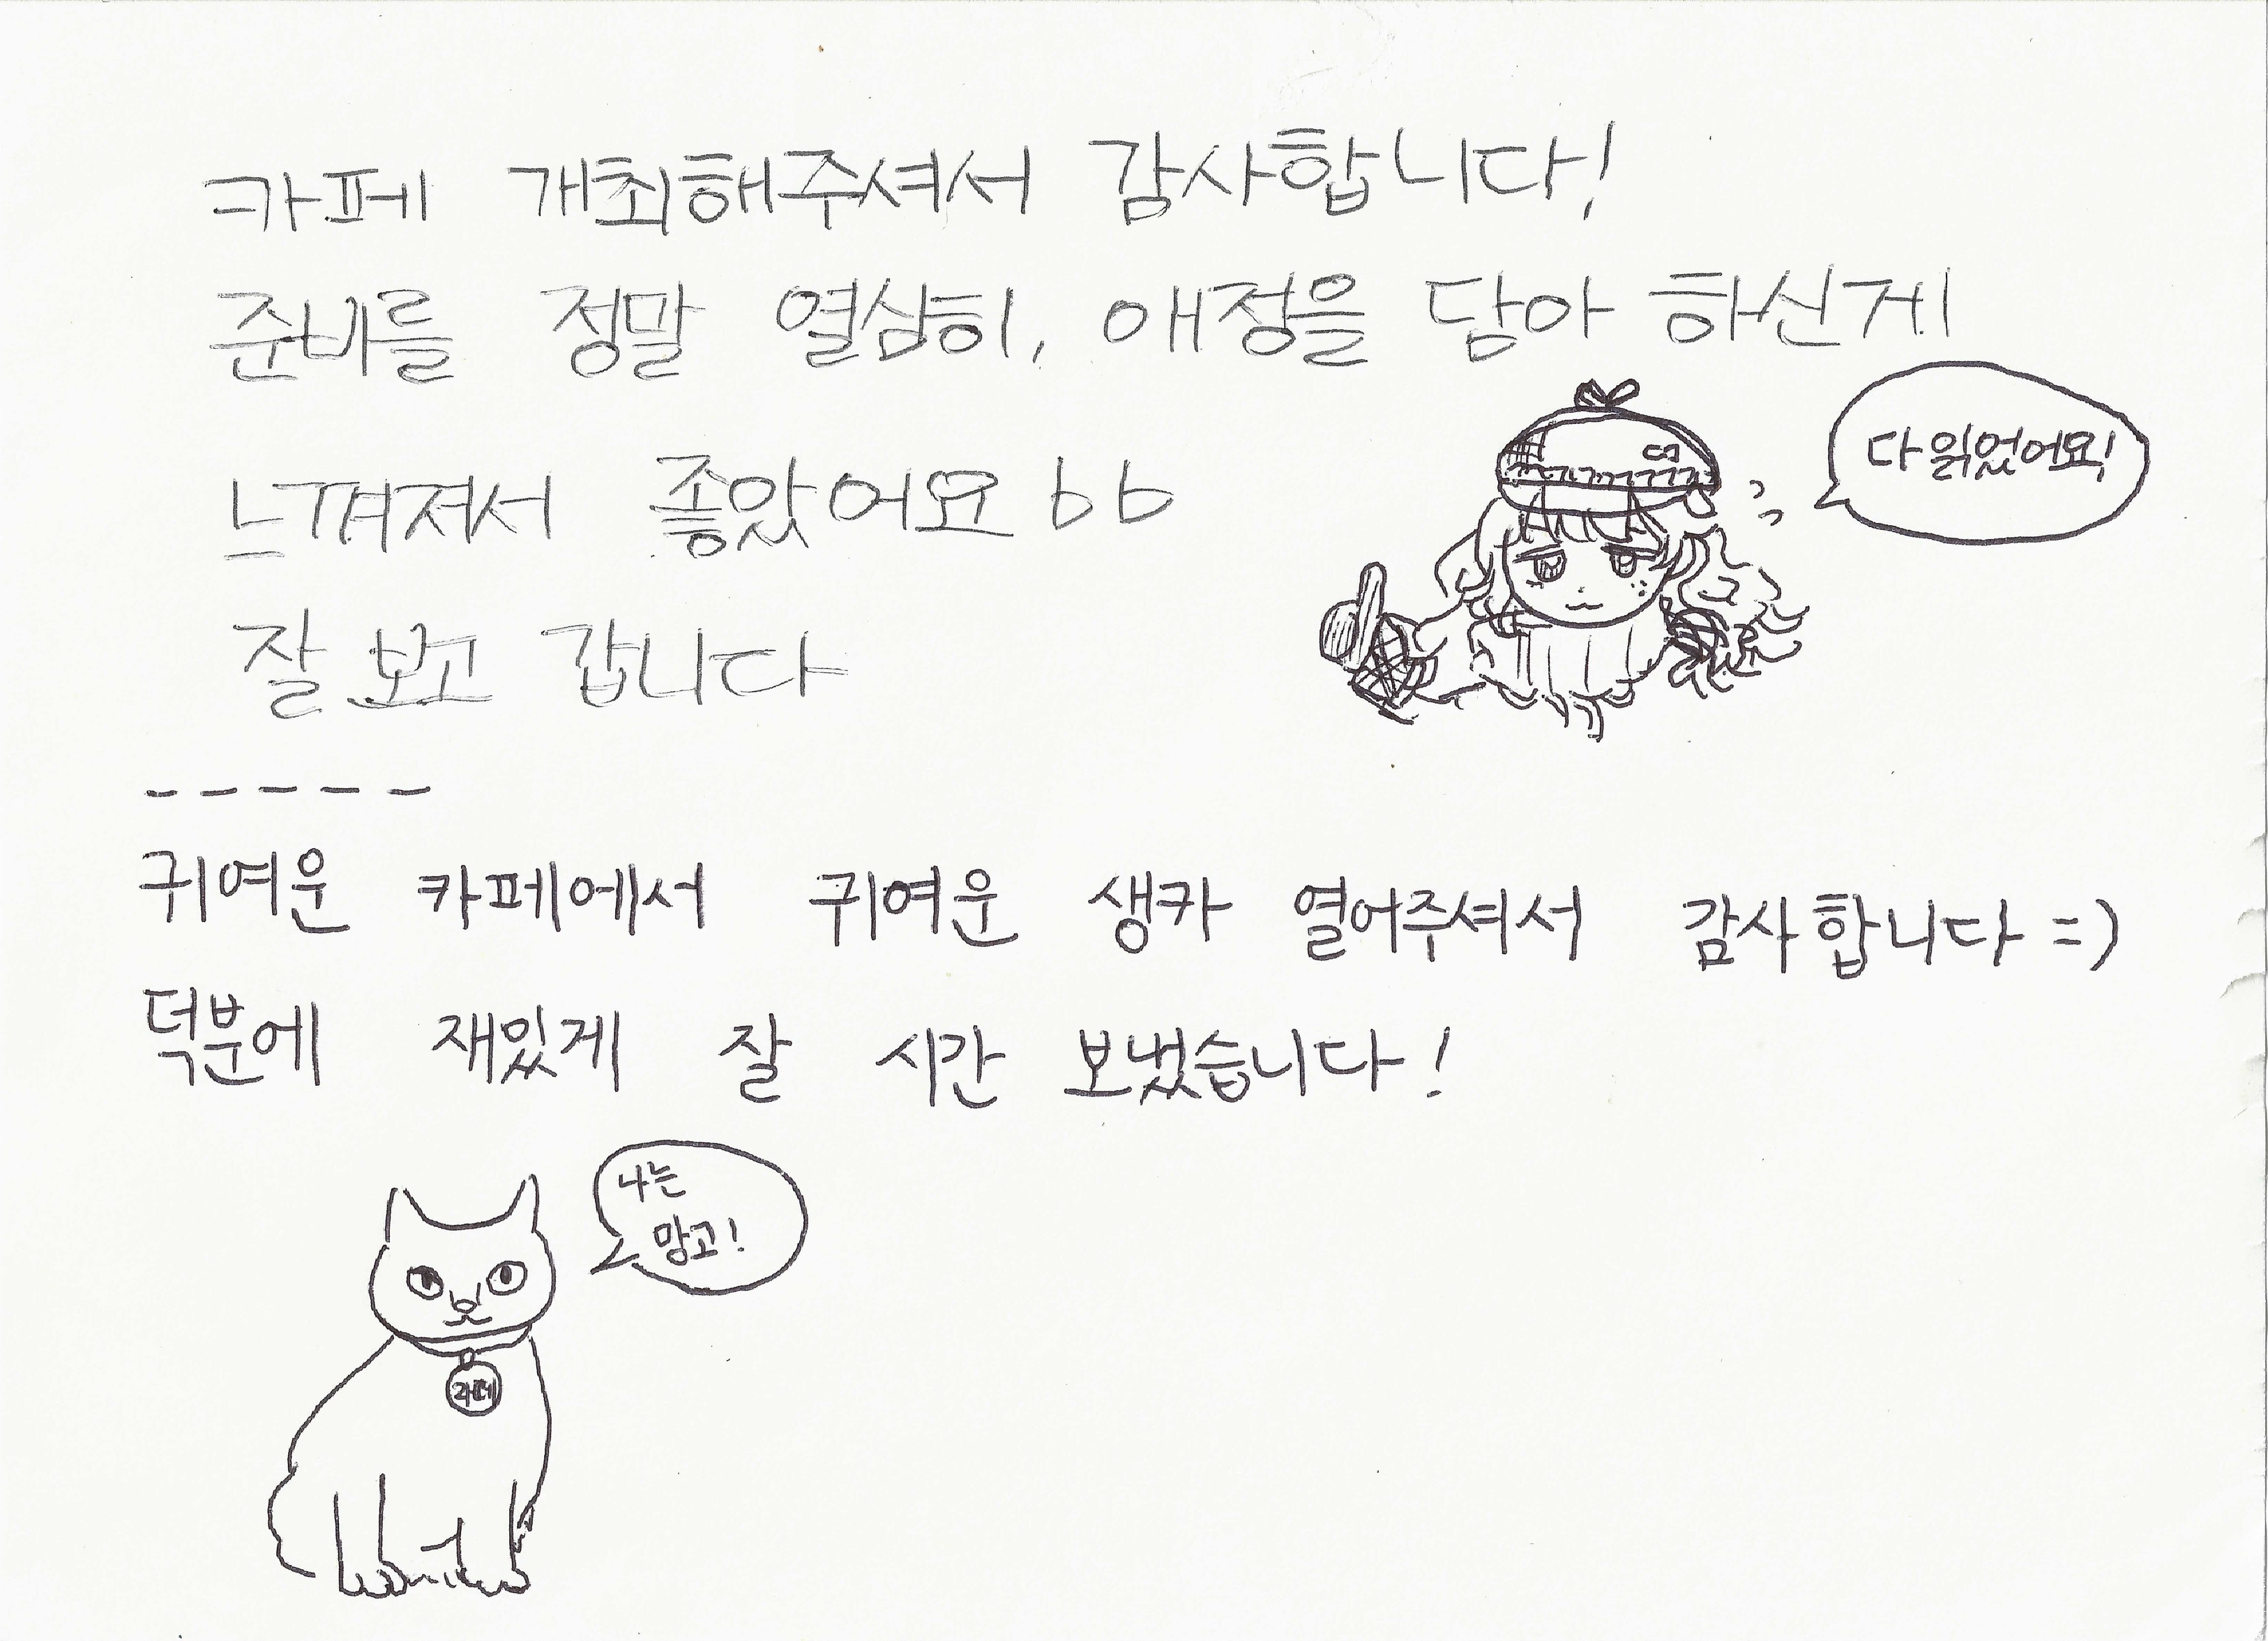 카페 개최해주셔서 감사합니다!
준비를 정말 열심히, 애정을 담아 하신게
느껴져서 좋았어요 bb
다 읽었어요!
잘 보고 갑니다
-----
귀여운 카페에서 귀여운 생카 열어주셔서 감사합니다 =)
덕분에 재있게 잘 시간 보냈습니다!
나는
망고!
카페